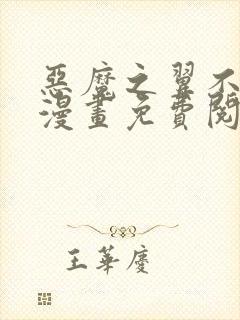 惡魔之翼不
漫畫免費閱
王華慶